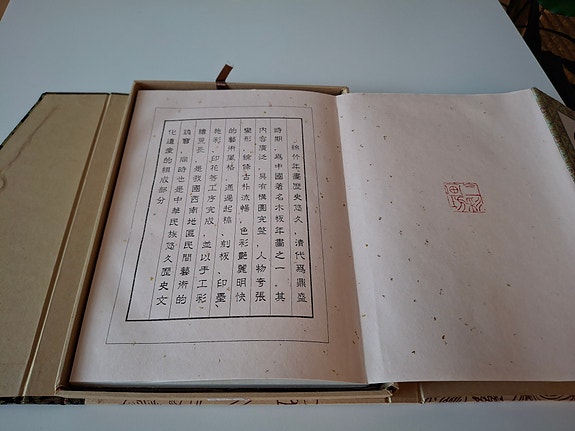 綿竹年畫歷史悠久，清代爲鼎盛
時期，爲中國著名木板年畫之一，其
内容廣泛，具有構圖完整，人物夸張
變形，線條古朴流暢，色彩艷麗明快
的藝術風格，通過起稿、刻板、印墨、
施彩、印花等工序完成，並以手工彩
繪見長，是我國西南地區民間藝術的
瑰寶，同時也是中華民族悠久歷史文
化遺産的組成部分